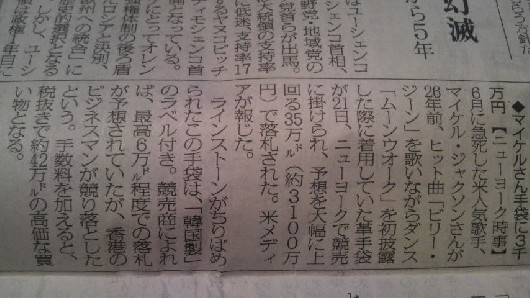 幻滅
から5年
はユーシェンコ
シェンコ首相、
野党・地域党の
党首らが出馬。
大統領の支持率
に低迷。支持率17
ヤヌコビッチ
チモシェンコ首
となっている。
◆マイケルさん手袋に3千
万円 【ニューヨーク時事】
6月に急死した米人気歌手、
マイケル・ジャクソンさんが
26年前、ヒット曲「ビリー・
ジーン」を歌いながらダンス
「ムーンウオーク」を初披露
した際に着用していた革手袋
が21日、ニューヨークで競売
に掛けられ、予想を大幅に上
回る35万㌦(約3100万
円)で落札された。米メディ
アが報じた。
ラインストーンがちりばめ
られたこの手袋は、「韓国製」
のラベル付き。競売商によれ
ば、最高6万㌦程度での落札
が予想されていたが、香港の
ビジネスマンが競り落とした
という。手数料を加えると、
税抜きで約42万㌦の高価な買
い物となる。